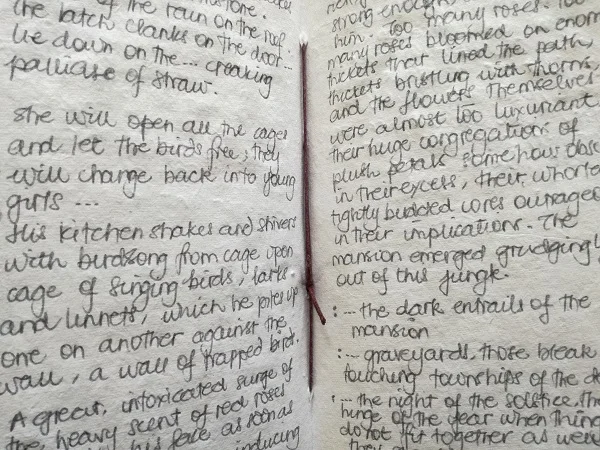 of the rain on the roof.
the latch clanks on the door...
lie down on the... creaking
palliase of straw.
she will open all the cages
and let the birds free; they
will change back into young
girls ...
His kitchen shakes and shivers
with birdsong from cage upon
cage of singing birds, larks
and linnets, which he piles up
one on another against the
wall, a wall of trapped birds.
A great, intoxicated surge of
the heavy scent of red roses
his face as soon as
inducing
strong enough
him. Too many roses. Too
many roses bloomed on enorm
thickets that lined the path,
thickets bristling with thorns,
and the flowers themselves
were almost too luxuriant,
their huge congregations of
plush petals somehow obsc
in their excess, their whorle
tightly budded cores outrageo
in their implications. The
mansion emerged grudgingl
out of this jungle.
:... the dark entrails of the
mansion
:... graveyards, those bleak
touching townships of the de
:... the night of the solstice, the
hinge of the year when thing
do not fit together as well